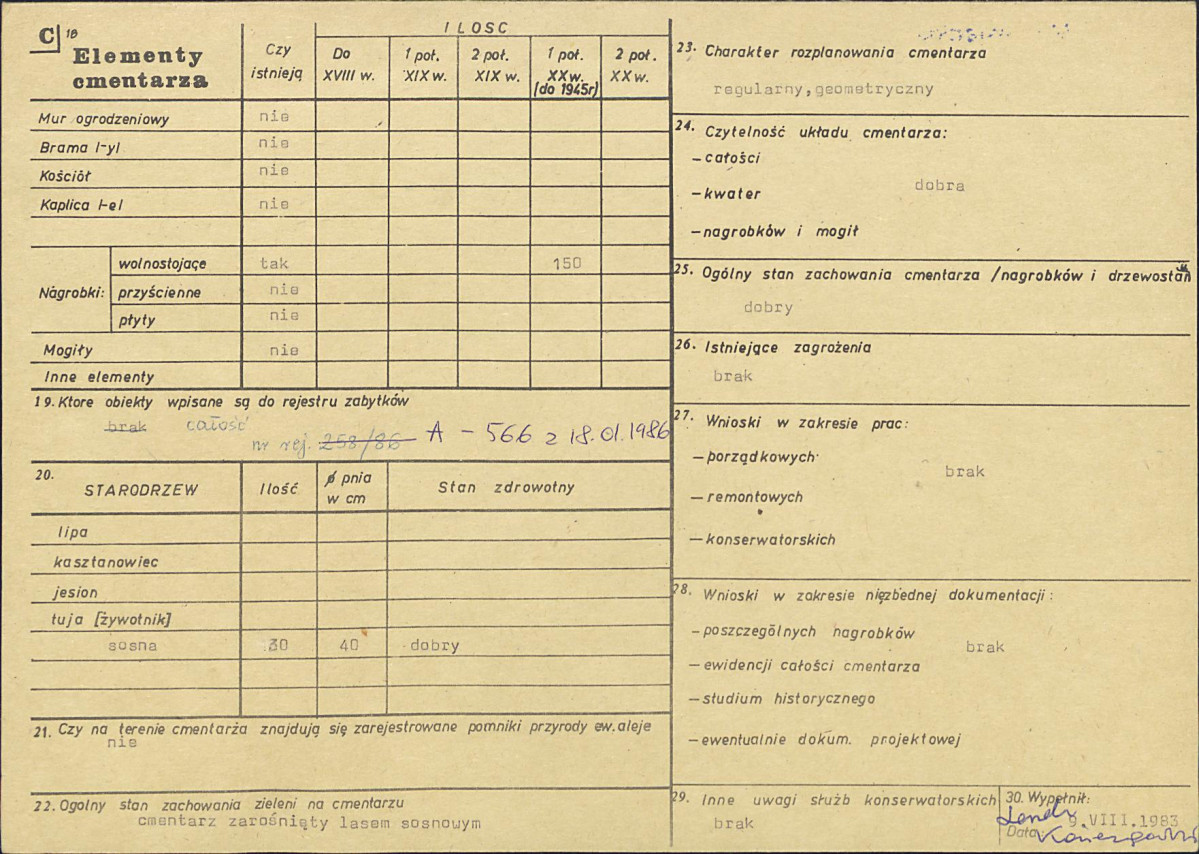 C 18
Elementy
cmentarza
Czy
istnieją
ILOSC
Do
XVIII w.
1 poł.
XIX w.
2 poł.
XIX w.
1 poł.
XX w.
(do 1945r)
2 poł.
XX w.
Mur ogrodzeniowy nie
Brama I-yl nie
Kościół nie
Kaplica I-el nie
Nagrobki:
wolnostojące tak 150
przyścienne nie
płyty nie
Mogiły nie
Inne elementy
19. Ktore obiekty wpisane są do rejestru zabytków
brak całość
nr rej. 258/86 A - 566 z 18.01.1986
20.
STARODRZEW
Ilość
ø pnia
w cm
Stan zdrowotny
lipa
kasztanowiec
jesion
tuja [żywotnik]
sosna 30 40 dobry
21. Czy na terenie cmentarża znajdują się zarejestrowane pomniki przyrody ew. aleje
nie
22. Ogolny stan zachowania zieleni na cmentarzu
cmentarz zarośnięty lasem sosnowym
23. Charakter rozplanowania cmentarza
regularny,geometryczny
24. Czytelność układu cmentarza:
- całości
- kwater dobra
- nagrobków i mogił
25. Ogólny stan zachowania cmentarza /nagrobków i drzewostan
dobry
26. Istniejące zagrożenia
brak
27. Wnioski w zakresie prac:
- porządkowych
brak
- remontowych
- konserwatorskich
28. Wnioski w zakresie nięzbędnej dokumentacji:
- poszczególnych nagrobków
brak
- ewidencji całości cmentarza
- studium historycznego
- ewentualnie dokum. projektowej
29. Inne uwagi służb konserwatorskich
brak
30. Wypełnił:
9.VIII.1983
Data